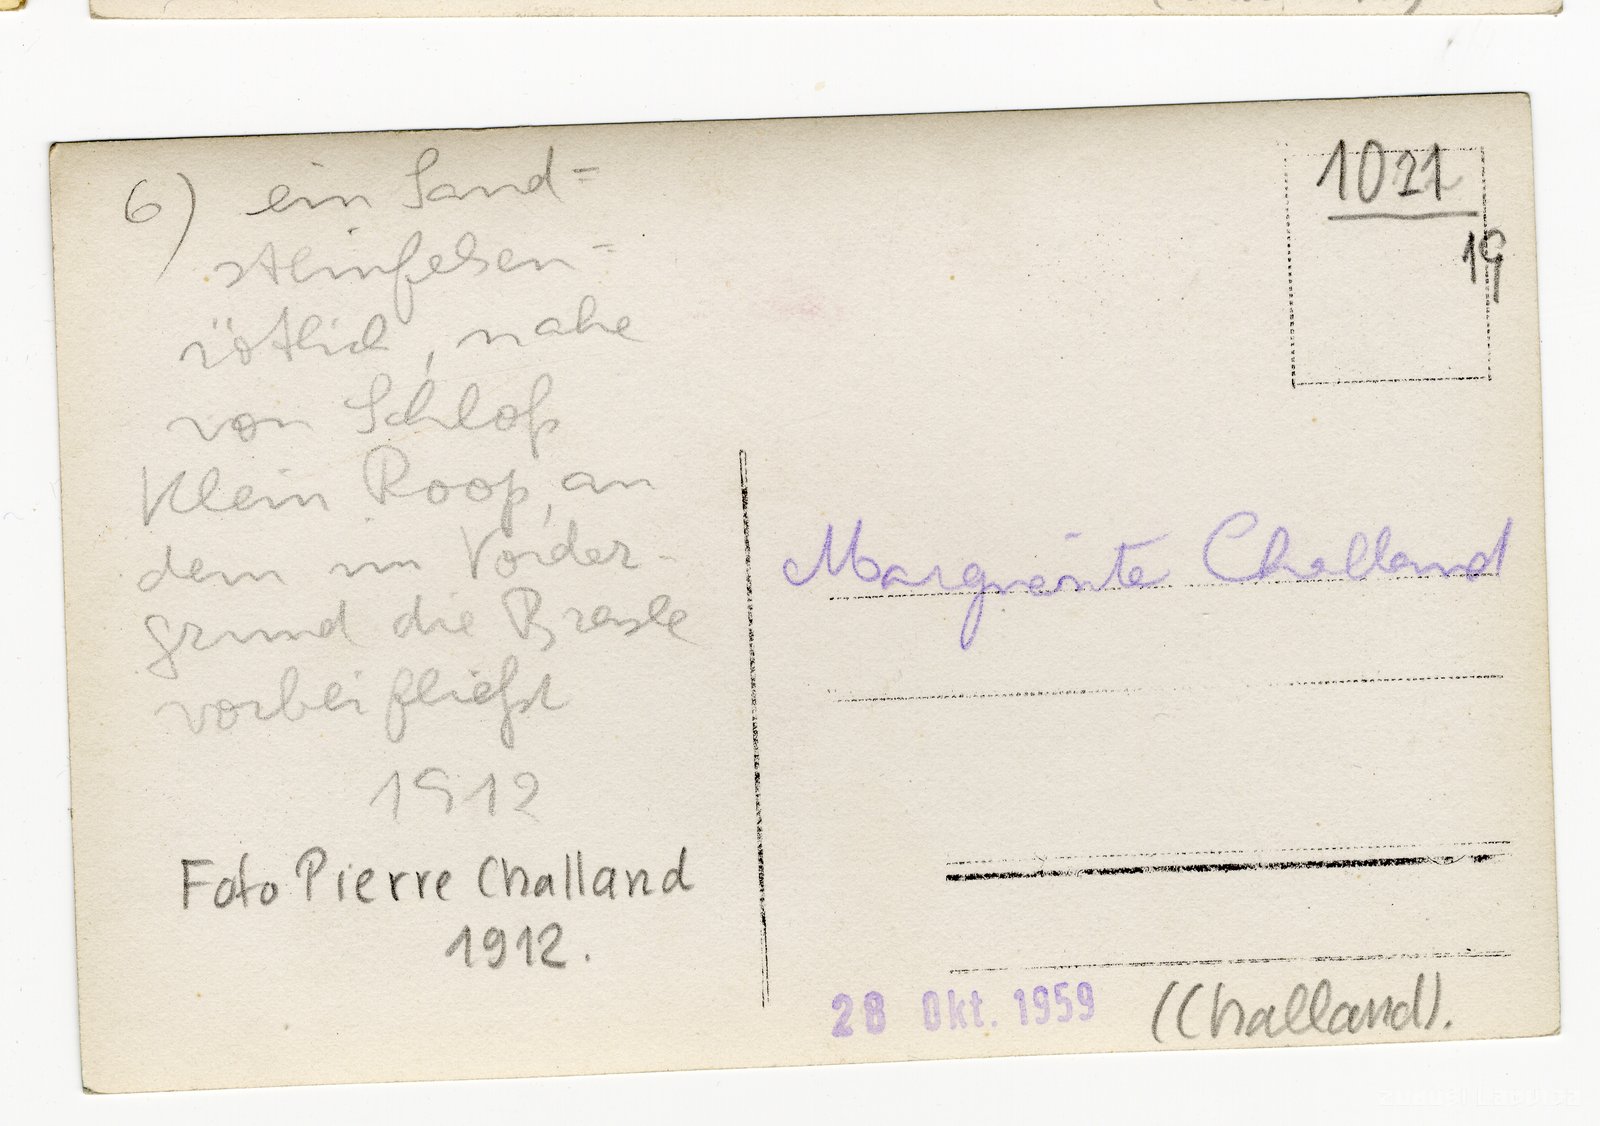 6) ein Sand=
steinfelsen=
rötlich, nahe
von Schloß
Klein Roop, an
dem im Vorder-
grund die Brasle
vorbei fließt
1912
Foto Pierre Challand
1912.
1021
19
Marguerite Challand
28 Okt. 1959
(Challand).